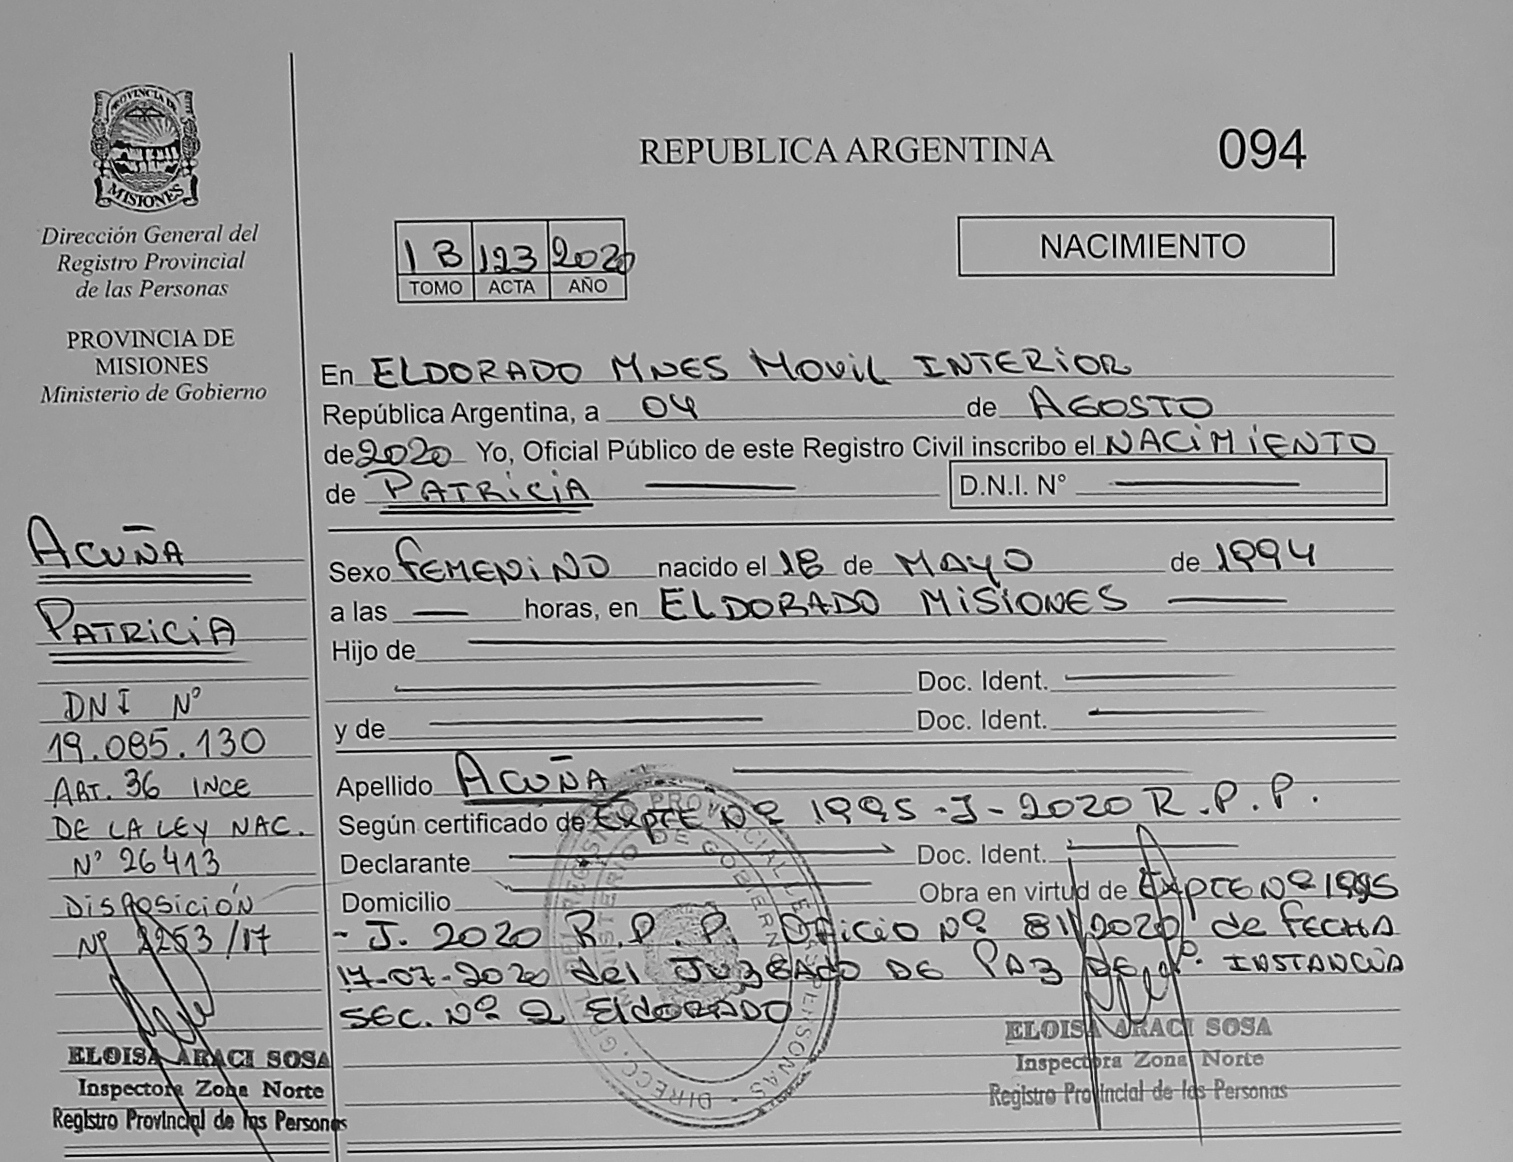 PROVINCIA DE
MISIONES
Dirección General del
Registro Provincial
de las Personas
PROVINCIA DE
MISIONES
Ministerio de Gobierno
ACUÑA
PATRICIA
DNI Nº
19.085.130
ART. 36 INCE
DE LA LEY NAC.
Nº 26413
DISPOSICIÓN
Nº 2253/17
ELOISA ARACI SOSA
Inspectora Zona Norte
Registro Provincial de las Personas
REPUBLICA ARGENTINA
094
1B 123 2020
TOMO ACTA AÑO
NACIMIENTO
En ELDORADO MNES MOVIL INTERIOR
República Argentina, a 04 de AGOSTO
de 2020 Yo, Oficial Público de este Registro Civil inscribo el NACIMIENTO
de PATRICIA D.N.I. N°
Sexo FEMENINO nacido el 18 de MAYO de 1994
a las horas, en ELDORADO MISIONES
Hijo de
Doc. Ident.
y de Doc. Ident.
Apellido ACUÑA
Según certificado de EXPTE Nº 1995-J-2020 R.P.P.
Declarante Doc. Ident.
Domicilio Obra en virtud de EXPTE Nº 1995
- J. 2020 R.P.P. Oficio Nº 81/2020 de FECHA
17-07-2020 del JUZGADO DE PAZ DE INSTANCIA
SEC. Nº 2 ElDORADO
ELOISA ARACI SOSA
Inspectora Zona Norte
Registro Provincial de las Personas